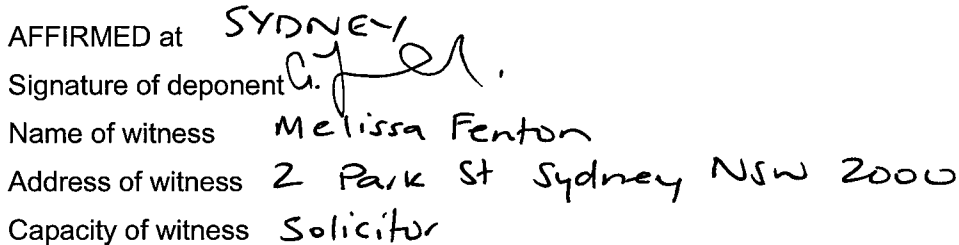 AFFIRMED at SYDNEY
Signature of deponent G.
Name of witness Melissa Fenton
Address of witness 2 Park St Sydney NSW 2000
Capacity of witness Solicitor